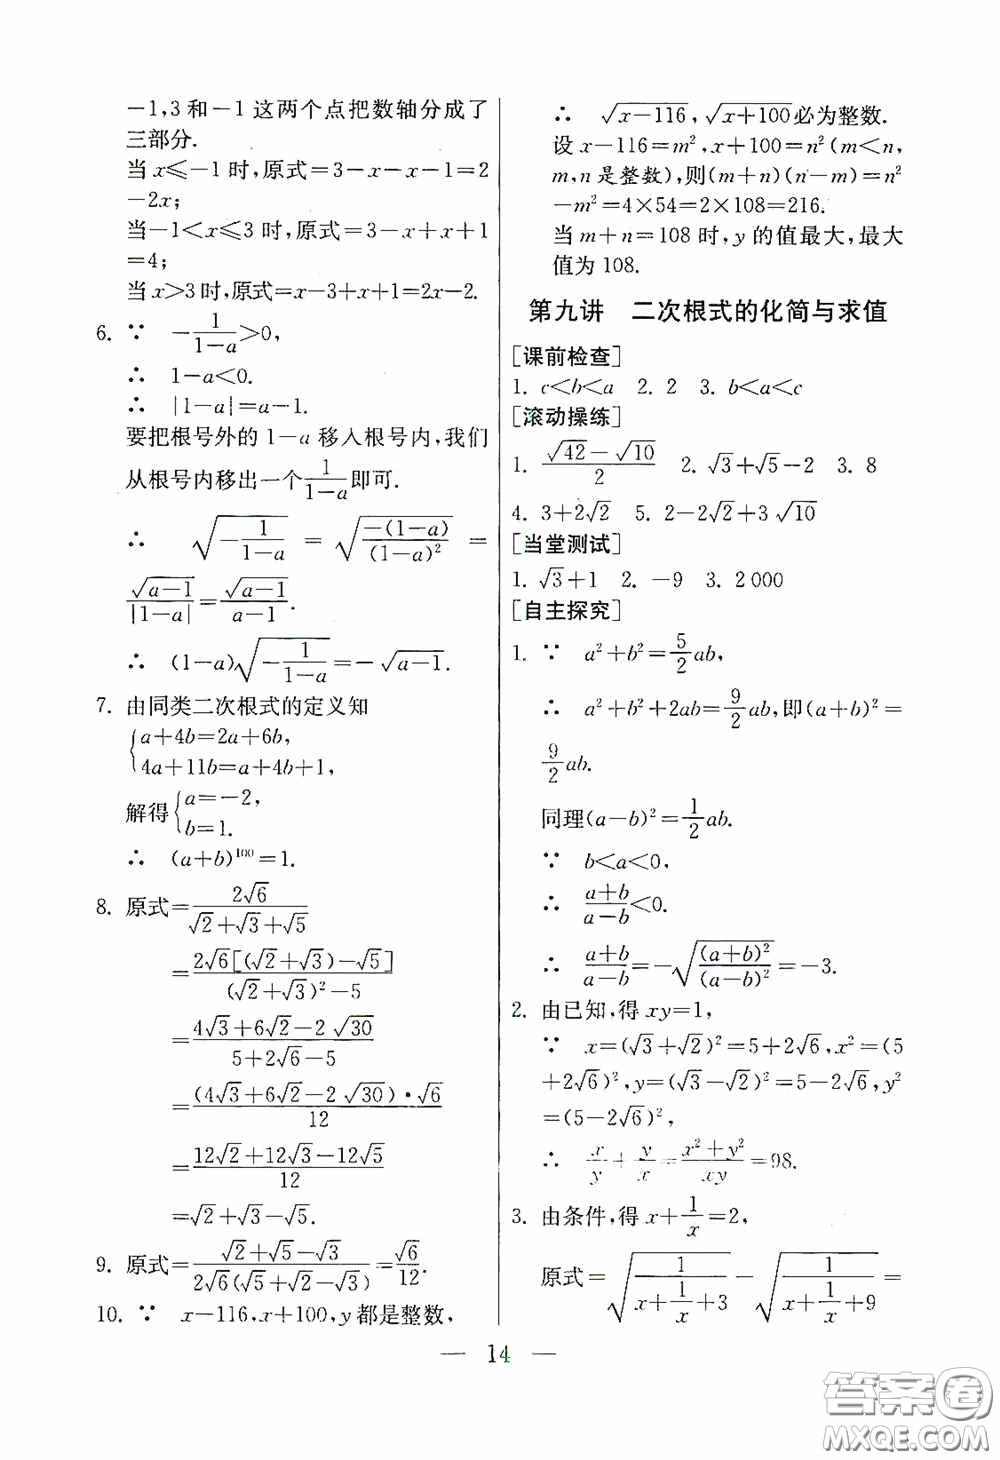 -1,3和-1这两个点把数轴分成了
三部分.
当x⩽-1时,原式=3-x-x-1=2
-2x;
当-1<x⩽3时,原式=3-x+x+1
=4;
当x>3时,原式=x-3+x+1=2x-2.
6. ∵ -1/(1-a)>0,
∴ 1-a<0.
∴ |1-a|=a-1.
要把根号外的1-a移入根号内,我们
从根号内移出一个1/(1-a)即可.
∴ √(-1/(1-a)) = √(-(1-a)/(1-a)²) =
√(a-1)/|1-a|=√(a-1)/(a-1).
∴ (1-a)√(-1/(1-a))=-√(a-1).
7. 由同类二次根式的定义知
{a+4b=2a+6b,
4a+11b=a+4b+1,
解得{a=-2,
b=1.
∴ (a+b)¹⁰⁰=1.
8. 原式=2√6/(√2+√3+√5)
=2√6[(√2+√3)-√5]/((√2+√3)²-5)
=(4√3+6√2-2√30)/(5+2√6-5)
=(4√3+6√2-2√30)·√6/12
=(12√2+12√3-12√5)/12
=√2+√3-√5.
9. 原式=(√2+√5-√3)/(2√6(√5+√2-√3))=√6/12.
10. ∵ x-116,x+100,y都是整数,
∴ √(x-116),√(x+100)必为整数.
设x-116=m²,x+100=n²(m<n,
m,n是整数),则(m+n)(n-m)=n²
-m²=4×54=2×108=216.
当m+n=108时,y的值最大,最大
值为108.
第九讲 二次根式的化简与求值
[课前检查]
1. c<b<a 2. 2 3. b<a<c
[滚动操练]
1. (√42-√10)/2 2. √3+√5-2 3. 8
4. 3+2√2 5. 2-2√2+3√10
[当堂测试]
1. √3+1 2. -9 3. 2000
[自主探究]
1. ∵ a²+b²=5/2ab,
∴ a²+b²+2ab=9/2ab,即(a+b)²=
9/2ab.
同理(a-b)²=1/2ab.
∵ b<a<0,
∴ (a+b)/(a-b)<0.
∴ (a+b)/(a-b)=-√((a+b)²/(a-b)²)=-3.
2. 由已知,得xy=1,
∵ x=(√3+√2)²=5+2√6,x²=(5
+2√6)²,y=(√3-√2)²=5-2√6,y²
=(5-2√6)²,
∴ x/y+y/x=(x²+y²)/xy=98.
3. 由条件,得x+1/x=2,
原式=√(1/(x+1/x+3))-√(1/(x+1/x+9))=
— 14 —
答案圈
MXQE.COM